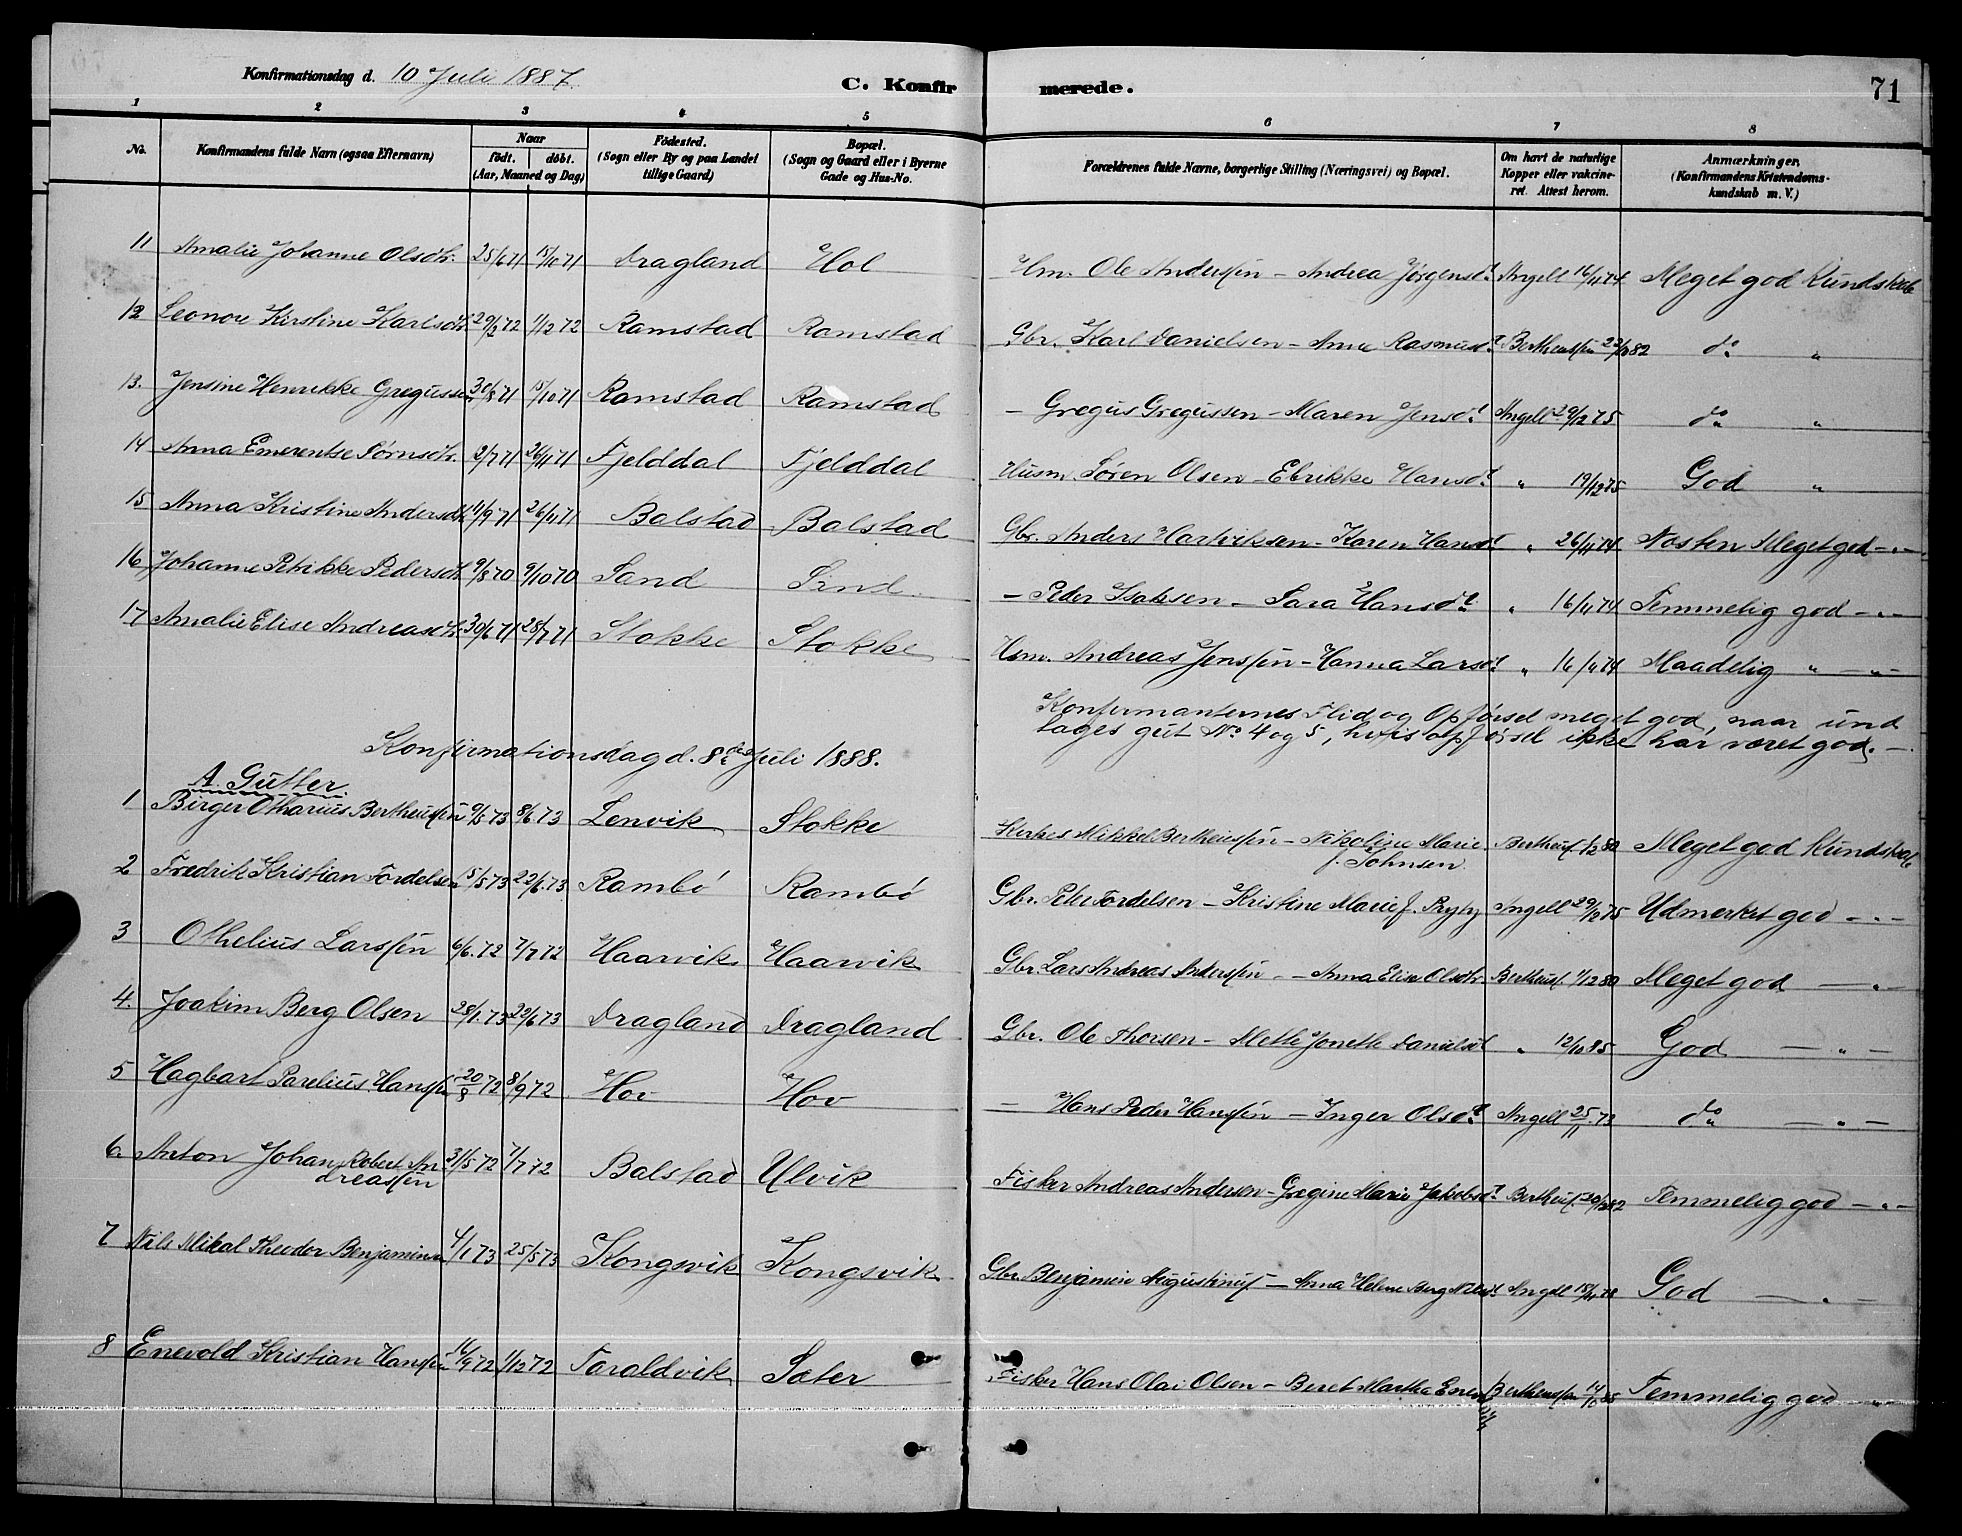 71
Konfirmationsdag d. 10 Juli 1887.
C. Konfirmerede.
1 2 3 4 5 6 7 8
No. Konfirmandens fulde Navn (ogsaa Efternavn) Naar født. døbt. (Aar, Maaned og Dag) Fødested. (Sogn eller By og paa Landet tillige Gaard) Bopæl. (Sogn og Gaard eller i Byerne Gade og Hus-No. Forældrenes fulde Navne, borgerlige Stilling (Næringsvei) og Bopæl. Om havt de naturlige Kopper eller vakcineret. Attest herom. Anmærkninger, (Konfirmandens Kristendomskundskab m. V.)
11 Amalie Johanne Olsdtr. 25/6 71 15/10 71 Dragland Hol Hm. Ole Anderssen - Andrea Jørgensdt. Angell 16/11 74 Meget god Kundskab
12 Leonore Kirstine Karlsdtr 29/2 72 1/12 72 Ramstad Ramstad Gbr. Karl Danielsen - Anne Rasmusdt. Bertheussen 82 do "
13. Jensine Henrikke Gregussen 30/8 71 15/10 71 Ramstad Ramstad - Gregus Gregussen - Maren Jensdt. Angell 29/12 75 do "
14 Anna Emerentse Sørnsdtr. 2/7 71 26/11 71 Fjelddal Fjelddal Husm. Søren Olsen - Elrikke Hansdt. " 19/12 75 God "
15 Anna Kristine Andersdtr 11/9 71 26/11 71 Balstad Balstad Gbr. Anders Hartviksen - Karen Hansdt " 26/11 74 Næsten Meget god - " -
16 Johanne Petrikke Pedersdtr. 9/8 70 9/10 70 Sand Sand - Peder Isaksen - Sara Hansdt. " 16/11 74 Temmelig god - " -
17 Amalie Elise Andreasdtr. 30/6 71 28/7 71 Stokke Stokke Hsm. Andreas Jenssen - Hanna Larsdt " 16/11 74 Maadelig " - " -
Konfirmanternes Flid og Opførsel meget god, naar und
tages gut No. 4 og 5, hvis opførsel ikke har været god. -
Konfirmationsdag d. 8de Juli 1888.
A. Gutter.
1 Birger Otharius Bertheussen 73 8/6 73 Lenvik Stokke Mikkel Bertheussen - Nikoline Marie f. Johnsen. Bertheus. 1/12 80 Meget god Kundskab
2 Fredrik Kristian Tordelsen 15/5 73 22/6 73 Rambø Rambø Gbr. Peter Tordelsen - Kristine Marie f. Angell 29/12 75 Udmerket god - " -
3 Othelius Larssen 6/6. 72 7/7 72 Haarvik Haarvik Gbr. Lars Andreas Anderssen - Anna Elise Olsdtr. Bertheus. 1/12 80 Meget god - " -
4. Joakim Berg Olsen 28/1. 73 22/6 73 Dragland Dragland Gbr. Ole Thorsen - Mette Jonette Danielsdt " 12/10 85 God - " -
5 Hagbart Parelius Hanssen 20/8 72 8/9 72 Hov Hov - Hans Peder Hanssen - Inger Olsdt. Angell 25/11 73 do - " -
6. Anton Johan Robert Andreassen 31/5 72 7/7 72 Balstad Ulvik Fisker Andreas Andersen - Gregine Marie Jakobsdt. Bertheus. 82 Temmelig god - " -
7 Nils Mikal Theodor Benjaminsen 4/1 73 25/5 73 Kongsvik Kongsvik Gbr. Benjamin Augustinus. - Anna Helene Berg Nilsdt Angell 18/11 78 God - " -
8 Enevold Kristian Hanssen 16/9 72 1/12 72 Taraldvik Sæter Fisker Hans Olai Olsen - Beret Martha Bertheussen 14/6 88 Temmelig god - " -